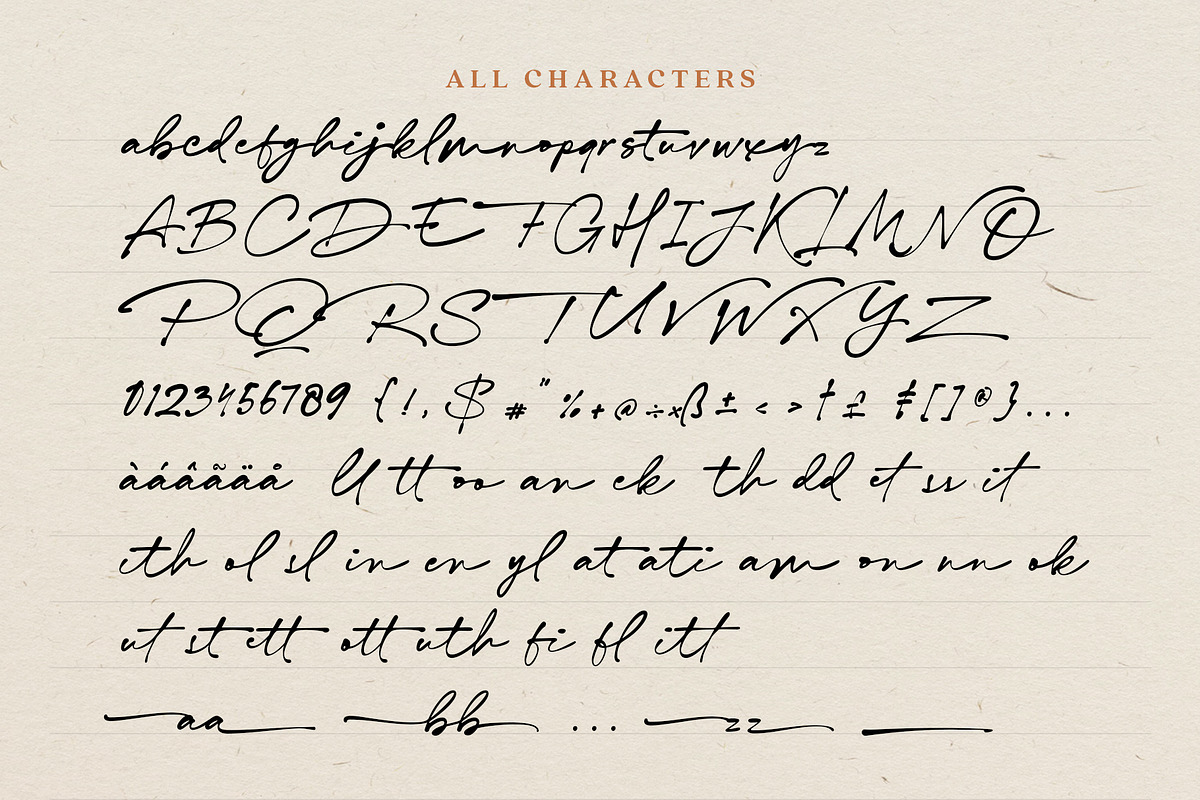 ALL CHARACTERS
abcdefghijklmnopqrstuvwxyz
ABCDEFGHIJKLMNO
PQRSTUVWXYZ
0123456789 {!, $ # " % + @ ÷ × ß ± < > † £ ‡ [ ] ® } ...
àáâãäå ll tt oo an ck th dd et ss it
ith ol sl in en yl at ati am on nn ok
ut st ett ott uth fi fl itt
aa bb ... zz